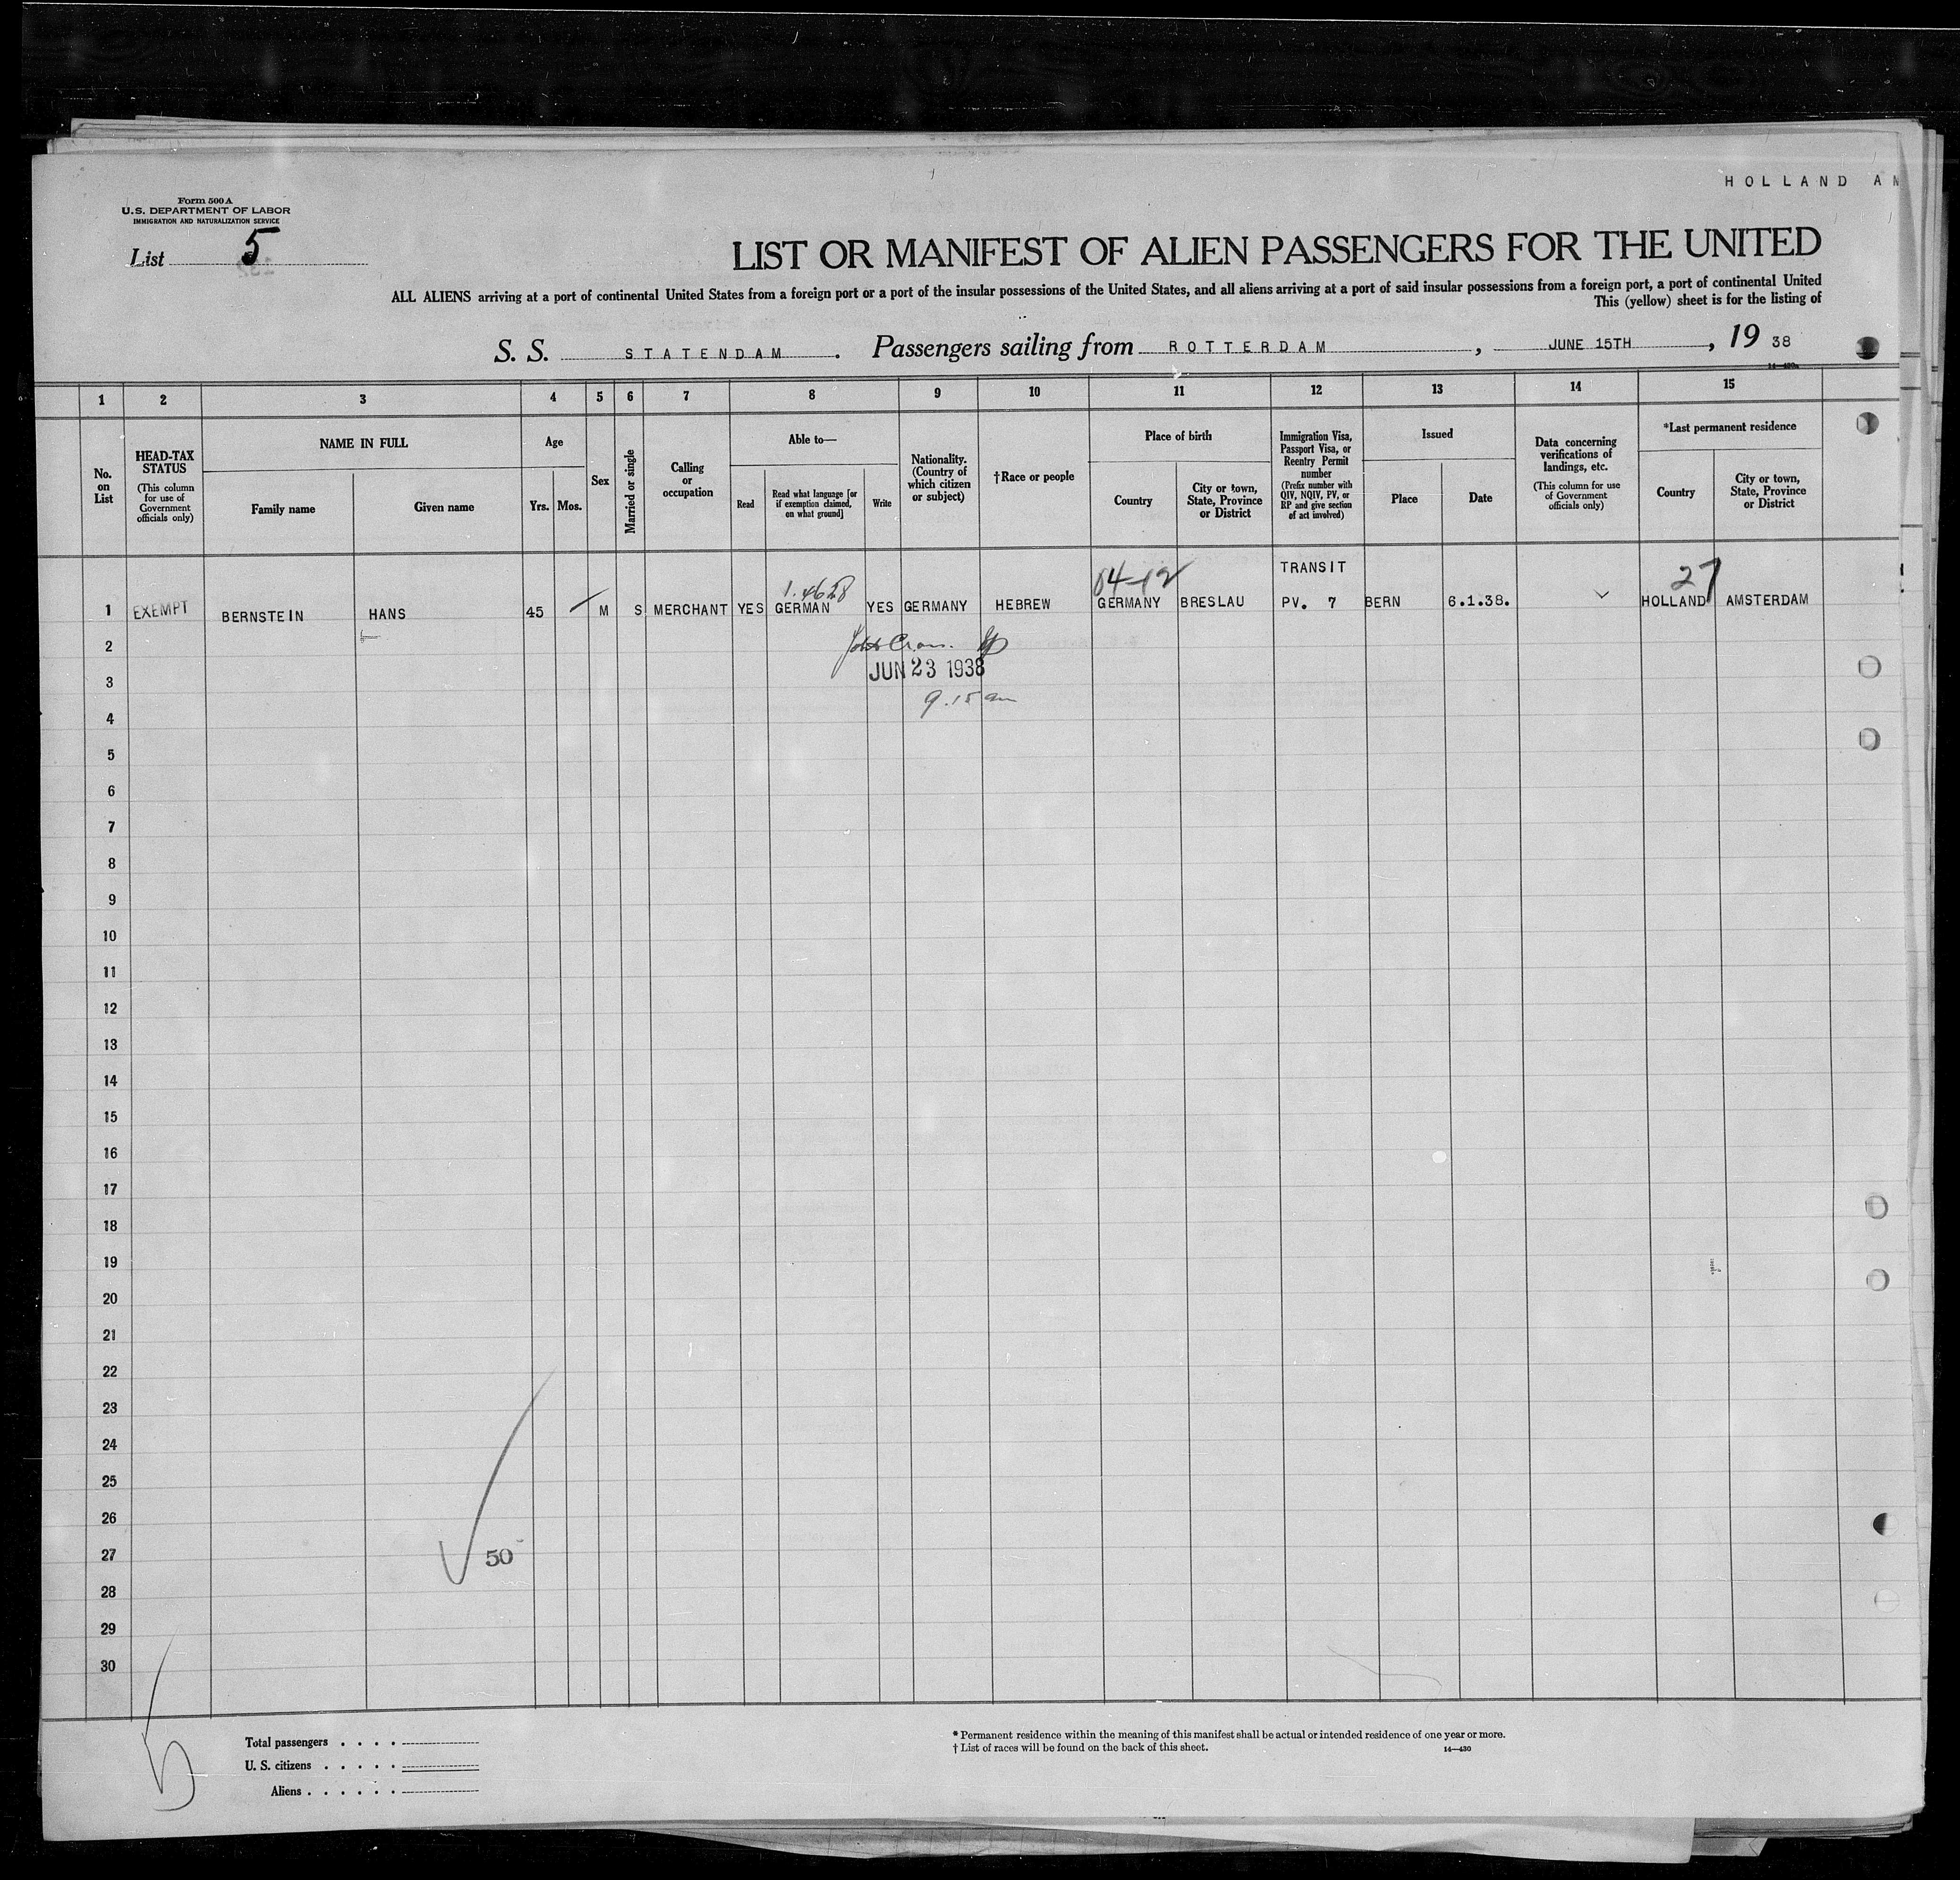 HOLLAND AM
Form 500 A
U.S. DEPARTMENT OF LABOR
IMMIGRATION AND NATURALIZATION SERVICE
List 5
LIST OR MANIFEST OF ALIEN PASSENGERS FOR THE UNITED
ALL ALIENS arriving at a port of continental United States from a foreign port or a port of the insular possessions of the United States, and all aliens arriving at a port of said insular possessions from a foreign port, a port of continental United
This (yellow) sheet is for the listing of
S. S. STATENDAM. Passengers sailing from ROTTERDAM, JUNE 15TH, 19 38
1 2 3 4 5 6 7 8 9 10 11 12 13 14 15
No. on List
HEAD-TAX STATUS
(This column for use of Government officials only)
NAME IN FULL
Family name
Given name
Age
Yrs.
Mos.
Sex
Married or single
Calling or occupation
Able to—
Read
Read what language [or if exemption claimed, on what ground]
Write
Nationality. (Country of which citizen or subject)
†Race or people
Place of birth
Country
City or town, State, Province or District
Immigration Visa, Passport Visa, or Reentry Permit number
(Prefix number with QIV, NQIV, PV, or RP and give section of act involved)
Issued
Place
Date
Data concerning verifications of landings, etc.
(This column for use of Government officials only)
*Last permanent residence
Country
City or town, State, Province or District
TRANSIT
27
1 EXEMPT BERNSTEIN HANS 45 M S MERCHANT YES GERMAN YES GERMANY HEBREW GERMANY BRESLAU PV. 7 BERN 6.1.38. HOLLAND AMSTERDAM
2
JUN 23 1938
3
9.15 am
4
5
6
7
8
9
10
11
12
13
14
15
16
17
18
19
20
21
22
23
24
25
26
27
50
28
29
30
5
Total passengers . . . .
U. S. citizens . . . . .
Aliens . . . . . .
* Permanent residence within the meaning of this manifest shall be actual or intended residence of one year or more.
† List of races will be found on the back of this sheet.
14—430